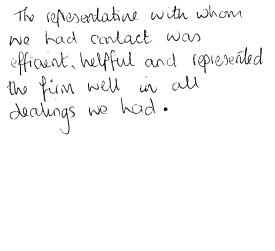 The representative with whom
we had contact was
efficient, helpful and represented
the firm well in all
dealings we had.